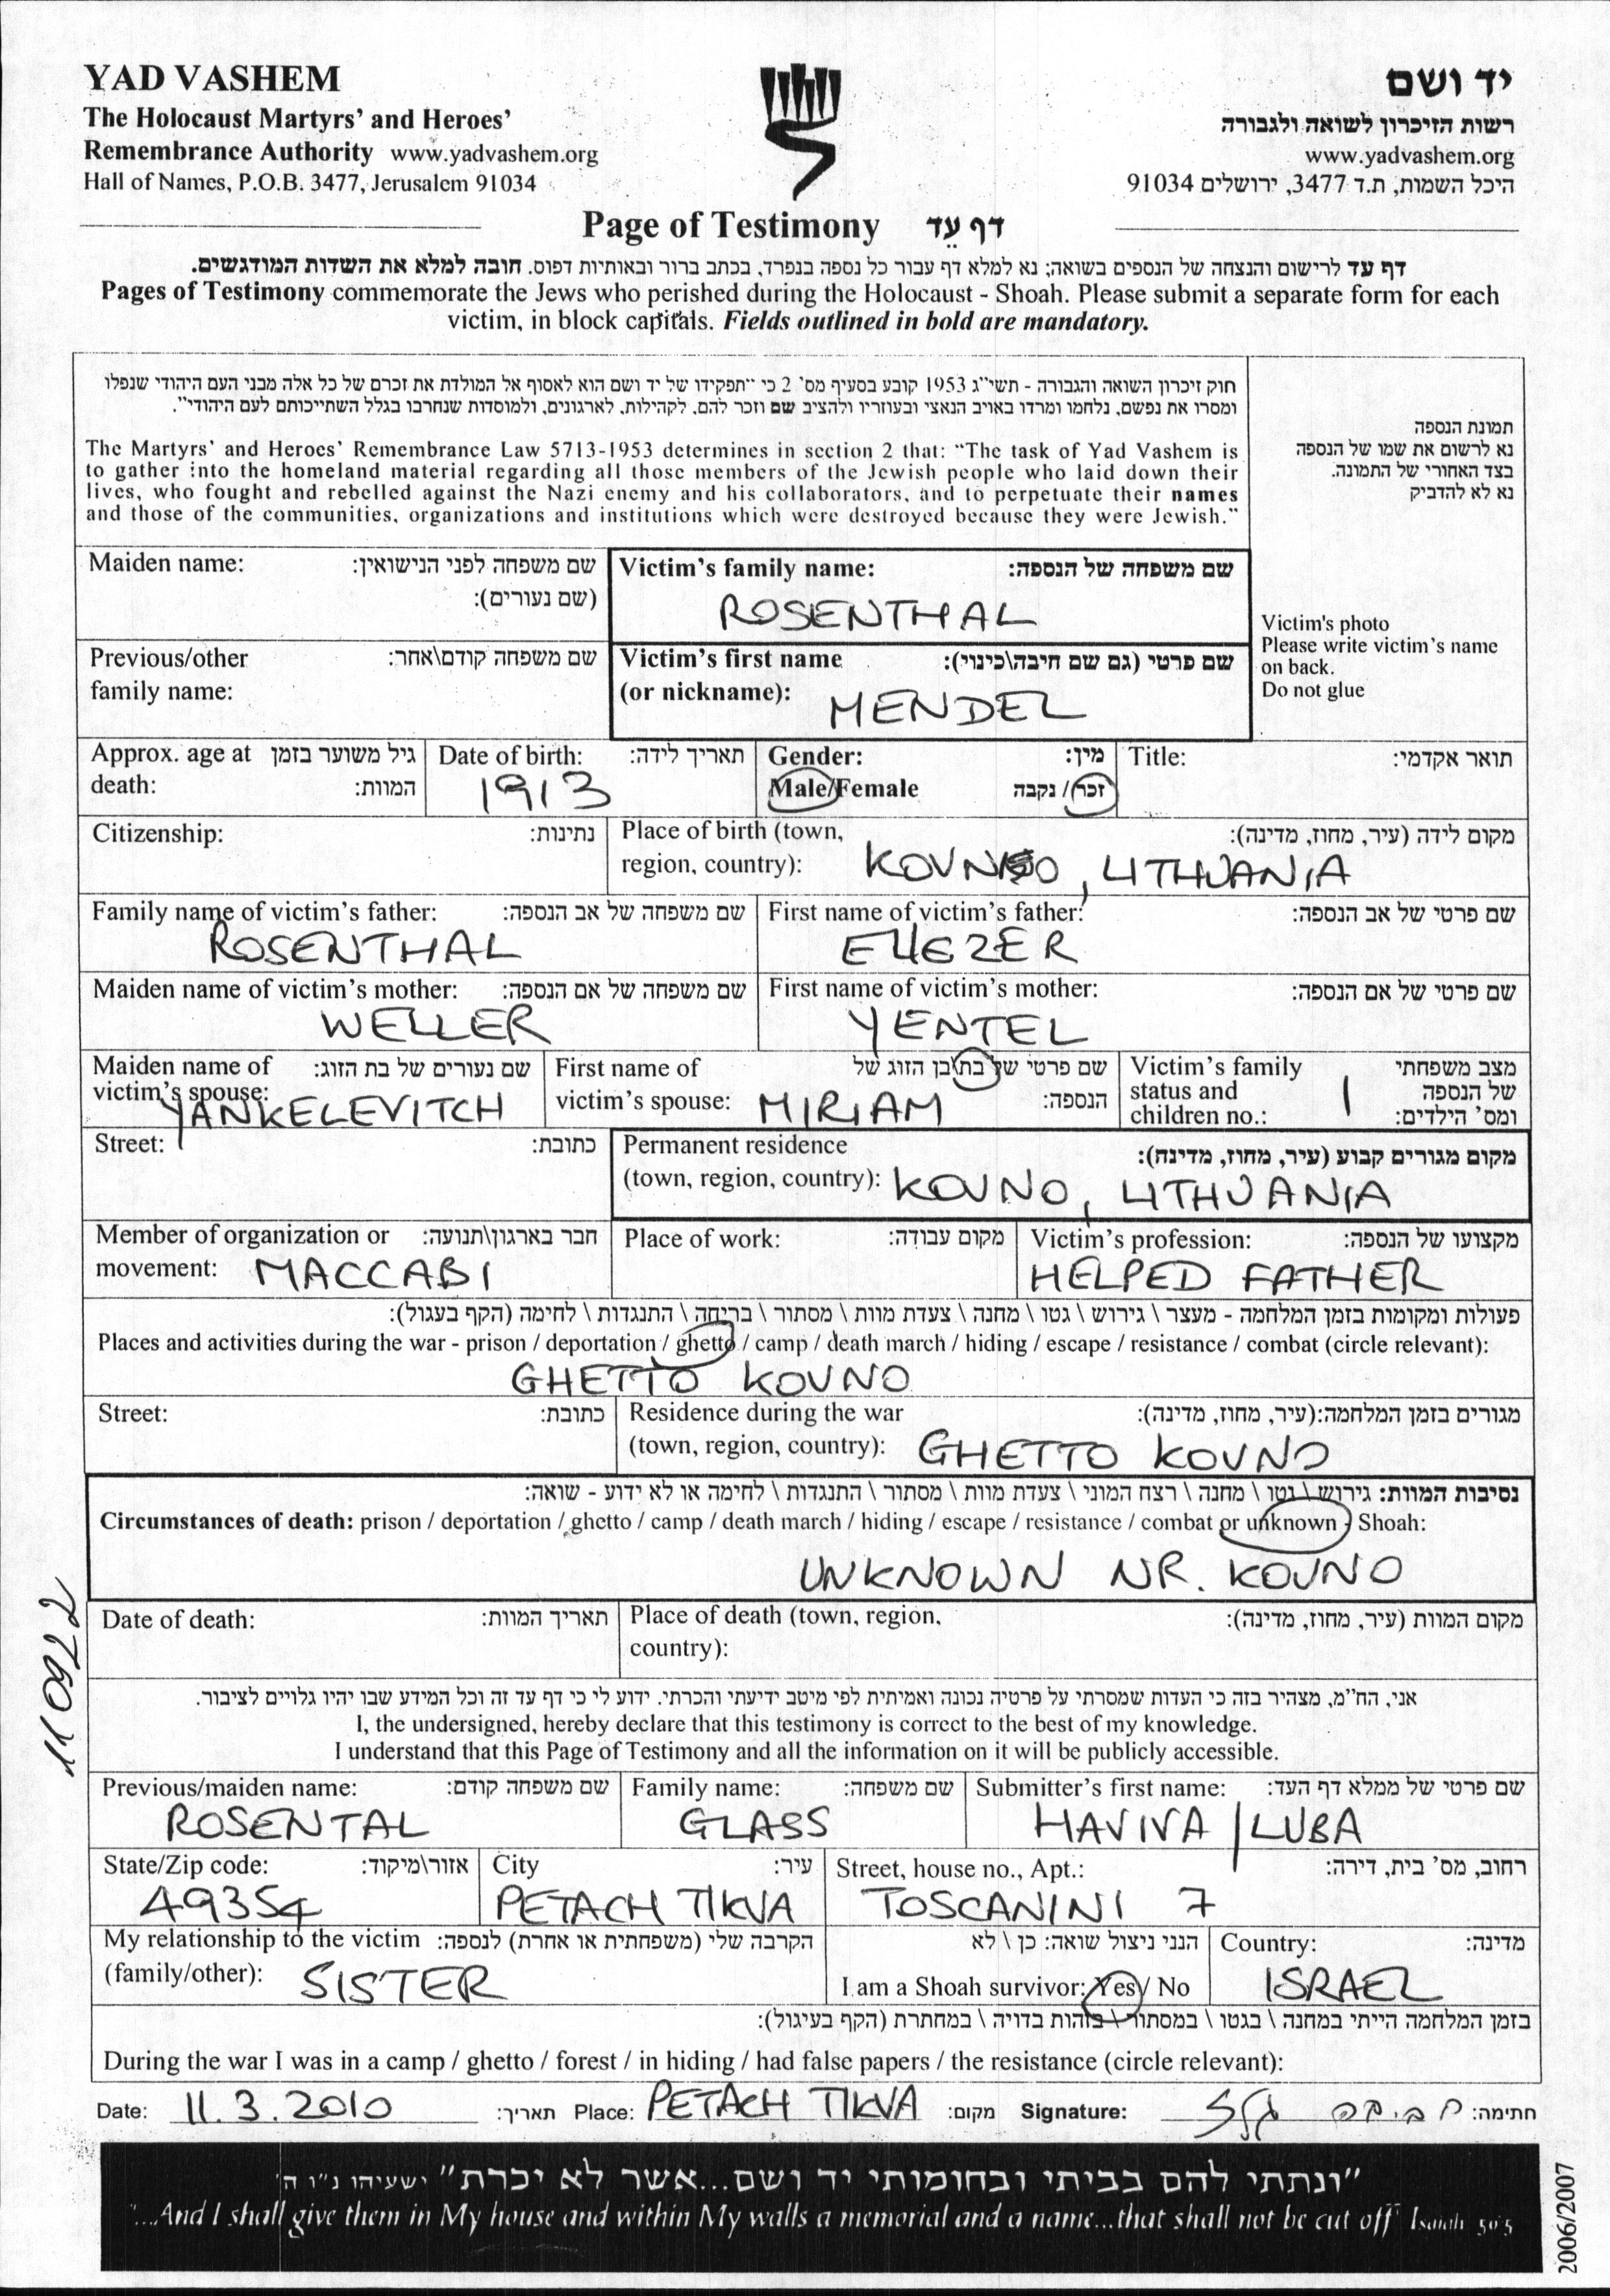 YAD VASHEM
The Holocaust Martyrs' and Heroes'
Remembrance Authority www.yadvashem.org
Hall of Names, P.O.B. 3477, Jerusalem 91034
יד ושם
רשות הזיכרון לשואה ולגבורה
www.yadvashem.org
היכל השמות, ת.ד 3477, ירושלים 91034
Page of Testimony דף עד
דף עד לרישום והנצחה של הנספים בשואה; נא למלא דף עבור כל נספה בנפרד, בכתב ברור ובאותיות דפוס. חובה למלא את השדות המודגשים.
Pages of Testimony commemorate the Jews who perished during the Holocaust - Shoah. Please submit a separate form for each
victim, in block capitals. Fields outlined in bold are mandatory.
חוק זיכרון השואה והגבורה - תשי"ג 1953 קובע בסעיף מס' 2 כי "תפקידו של יד ושם הוא לאסוף אל המולדת את זכרם של כל אלה מבני העם היהודי שנפלו
ומסרו את נפשם, נלחמו ומרדו באויב הנאצי ובעוזריו ולהציב שם וזכר להם, לקהילות, לארגונים, ולמוסדות שנחרבו בגלל השתייכותם לעם היהודי".
The Martyrs' and Heroes' Remembrance Law 5713-1953 determines in section 2 that: "The task of Yad Vashem is
to gather into the homeland material regarding all those members of the Jewish people who laid down their
lives, who fought and rebelled against the Nazi enemy and his collaborators, and to perpetuate their names
and those of the communities, organizations and institutions which were destroyed because they were Jewish."
תמונת הנספה
נא לרשום את שמו של הנספה
בצד האחורי של התמונה.
נא לא להדביק
Victim's photo
Please write victim's name
on back.
Do not glue
Maiden name: שם משפחה לפני הנישואין:
(שם נעורים):
Victim's family name: שם משפחה של הנספה:
ROSENTHAL
Previous/other שם משפחה קודם\אחר:
family name:
Victim's first name שם פרטי (גם שם חיבה\כינוי):
(or nickname): MENDEL
Approx. age at גיל משוער בזמן
death: המוות:
Date of birth: תאריך לידה:
1913
Gender: מין:
Male/Female זכר/ נקבה
Title: תואר אקדמי:
Citizenship: נתינות:
Place of birth (town, מקום לידה (עיר, מחוז, מדינה):
region, country): KOVNO, LITHUANIA
Family name of victim's father: שם משפחה של אב הנספה:
ROSENTHAL
First name of victim's father: שם פרטי של אב הנספה:
ELIEZER
Maiden name of victim's mother: שם משפחה של אם הנספה:
WELLER
First name of victim's mother: שם פרטי של אם הנספה:
YENTEL
Maiden name of שם נעורים של בת הזוג:
victim's spouse: YANKELEVITCH
First name of שם פרטי של בת\בן הזוג של
victim's spouse: MIRIAM הנספה:
Victim's family מצב משפחתי
status and של הנספה
children no.: 1 ומס' הילדים:
Street: כתובת:
Permanent residence מקום מגורים קבוע (עיר, מחוז, מדינה):
(town, region, country): KOVNO, LITHUANIA
Member of organization or חבר בארגון\תנועה:
movement: MACCABI
Place of work: מקום עבודה:
Victim's profession: מקצועו של הנספה:
HELPED FATHER
פעולות ומקומות בזמן המלחמה - מעצר \ גירוש \ גטו \ מחנה \ צעדת מוות \ מסתור \ בריחה \ התנגדות \ לחימה (הקף בעגול):
Places and activities during the war - prison / deportation / ghetto / camp / death march / hiding / escape / resistance / combat (circle relevant):
GHETTO KOVNO
Street: כתובת:
Residence during the war מגורים בזמן המלחמה:(עיר, מחוז, מדינה):
(town, region, country): GHETTO KOVNO
נסיבות המוות: גירוש \ גטו \ מחנה \ רצח המוני \ צעדת מוות \ מסתור \ התנגדות \ לחימה או לא ידוע - שואה:
Circumstances of death: prison / deportation / ghetto / camp / death march / hiding / escape / resistance / combat or unknown - Shoah:
UNKNOWN NR. KOVNO
Date of death: תאריך המוות:
Place of death (town, region, מקום המוות (עיר, מחוז, מדינה):
country):
110922
אני, הח"מ, מצהיר בזה כי העדות שמסרתי על פרטיה נכונה ואמיתית לפי מיטב ידיעתי והכרתי. ידוע לי כי דף עד זה וכל המידע שבו יהיו גלויים לציבור.
I, the undersigned, hereby declare that this testimony is correct to the best of my knowledge.
I understand that this Page of Testimony and all the information on it will be publicly accessible.
Previous/maiden name: שם משפחה קודם:
ROSENTAL
Family name: שם משפחה:
GLASS
Submitter's first name: שם פרטי של ממלא דף העד:
HAVIVA / LUBA
State/Zip code: אזור\מיקוד:
49354
City עיר:
PETACH TIKVA
Street, house no., Apt.: רחוב, מס' בית, דירה:
TOSCANINI 7
My relationship to the victim הקרבה שלי (משפחתית או אחרת) לנספה:
(family/other): SISTER
הנני ניצול שואה: כן \ לא
I am a Shoah survivor: Yes / No
Country: מדינה:
ISRAEL
בזמן המלחמה הייתי במחנה \ בגטו \ במסתור \ בזהות בדויה \ במחתרת (הקף בעיגול):
During the war I was in a camp / ghetto / forest / in hiding / had false papers / the resistance (circle relevant):
Date: 11.3.2010 תאריך: Place: PETACH TIKVA מקום: Signature: חביבה גלס חתימה:
"ונתתי להם בביתי ובחומותי יד ושם...אשר לא יכרת" ישעיהו נ"ו ה'
"...And I shall give them in My house and within My walls a memorial and a name...that shall not be cut off" Isaiah 56:5
2006/2007